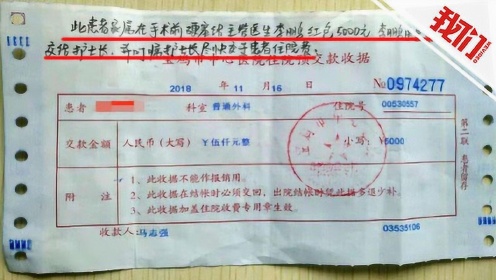 我们视频
此患者家属在手术前硬塞给主管医生李鹏红包5000元 李鹏
交给护士长，并叮嘱护士长尽快交于患者住院费。
宝鸡市中心医院住院预交款收据
2018 11 16 No 0974277
患者 科室 普通外科 住院号 00530557
交款金额 人民币（大写） Y伍仟元整 小写：Y5000
附 注
1、此收据不能作报销用。
2、此收据在结帐时必须交回，出院结帐时凭此据多退少补。
3、此收据加盖住院收费专用章生效。
收款人：马志强 03535106
第二联
患者留存